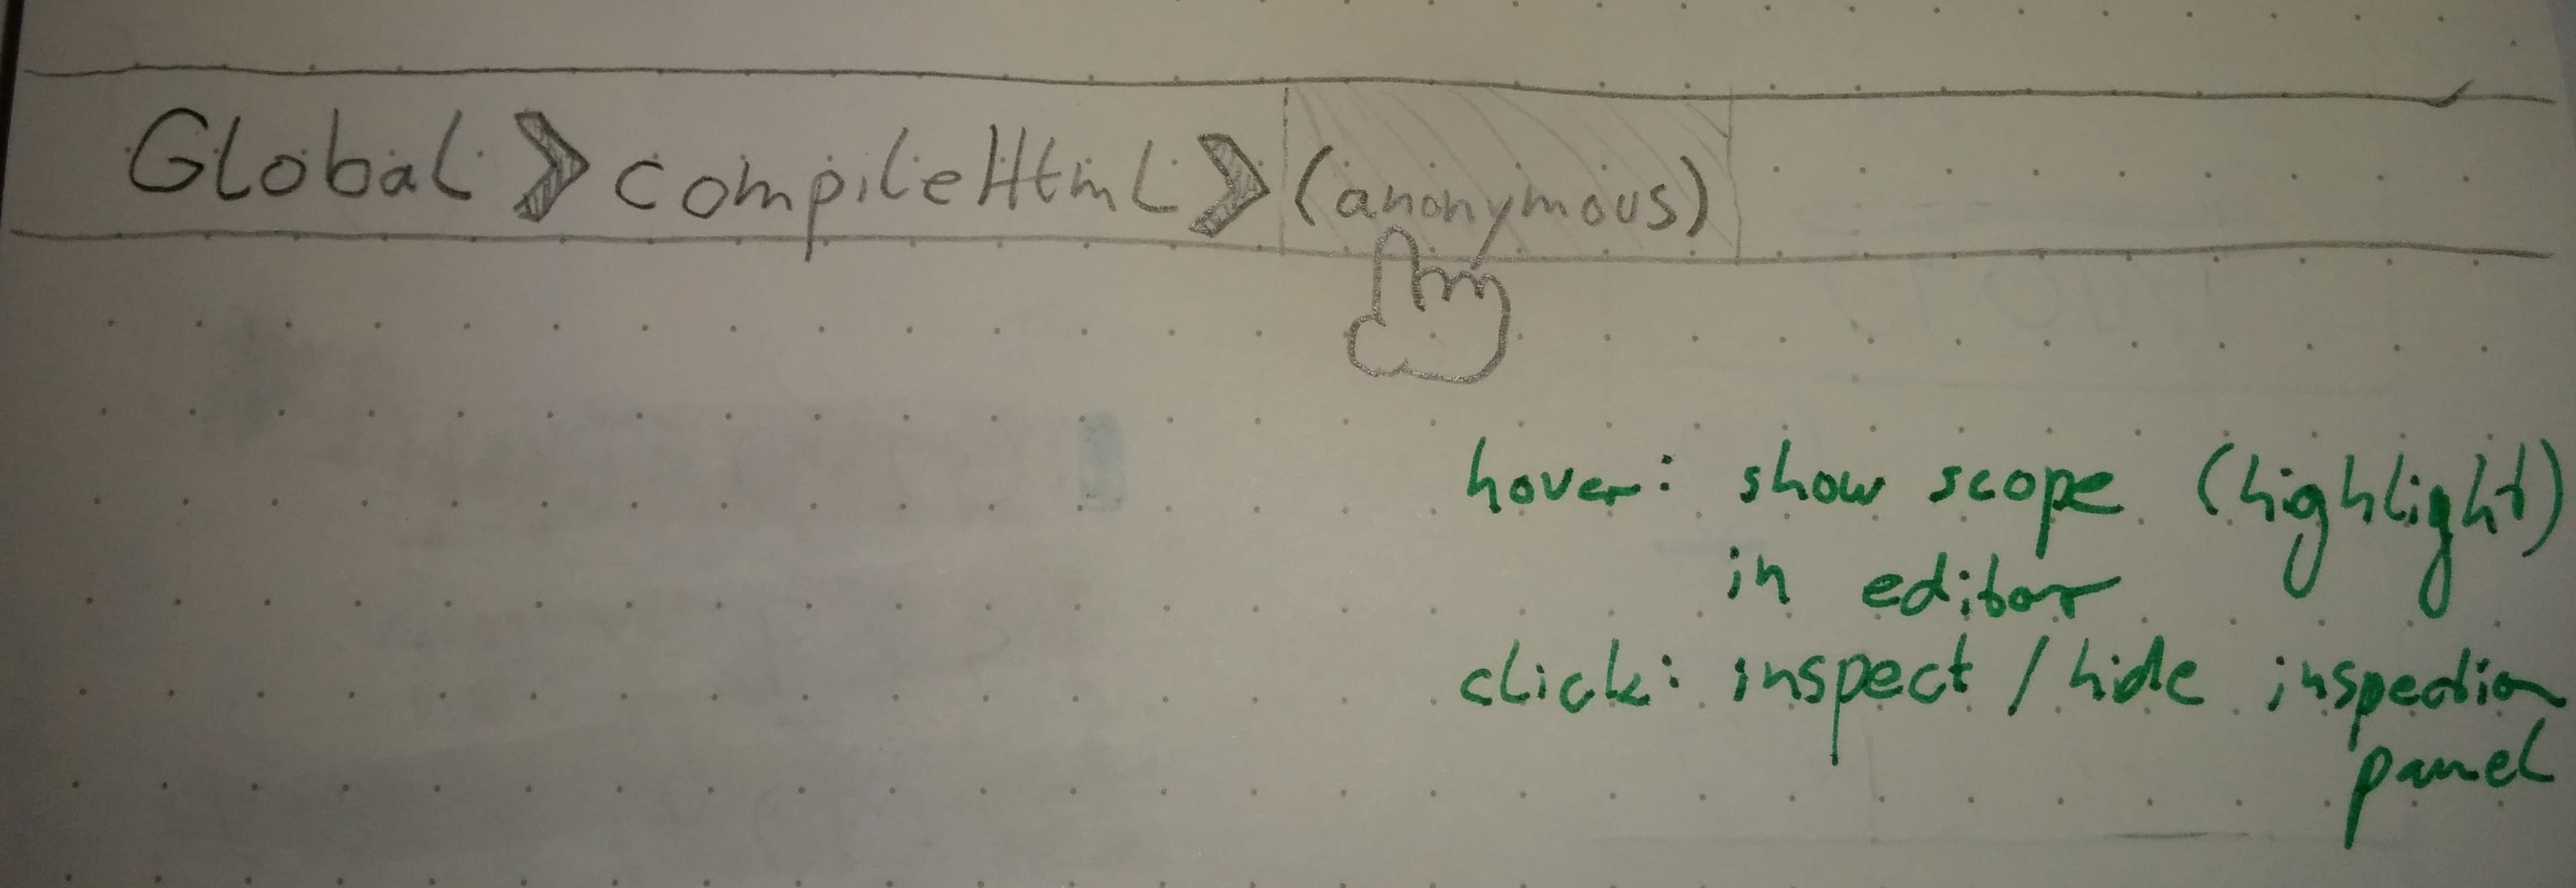 Global > compileHtml > (anonymous)
hover: show scope (highlight)
in editor
click: inspect / hide inspection
panel